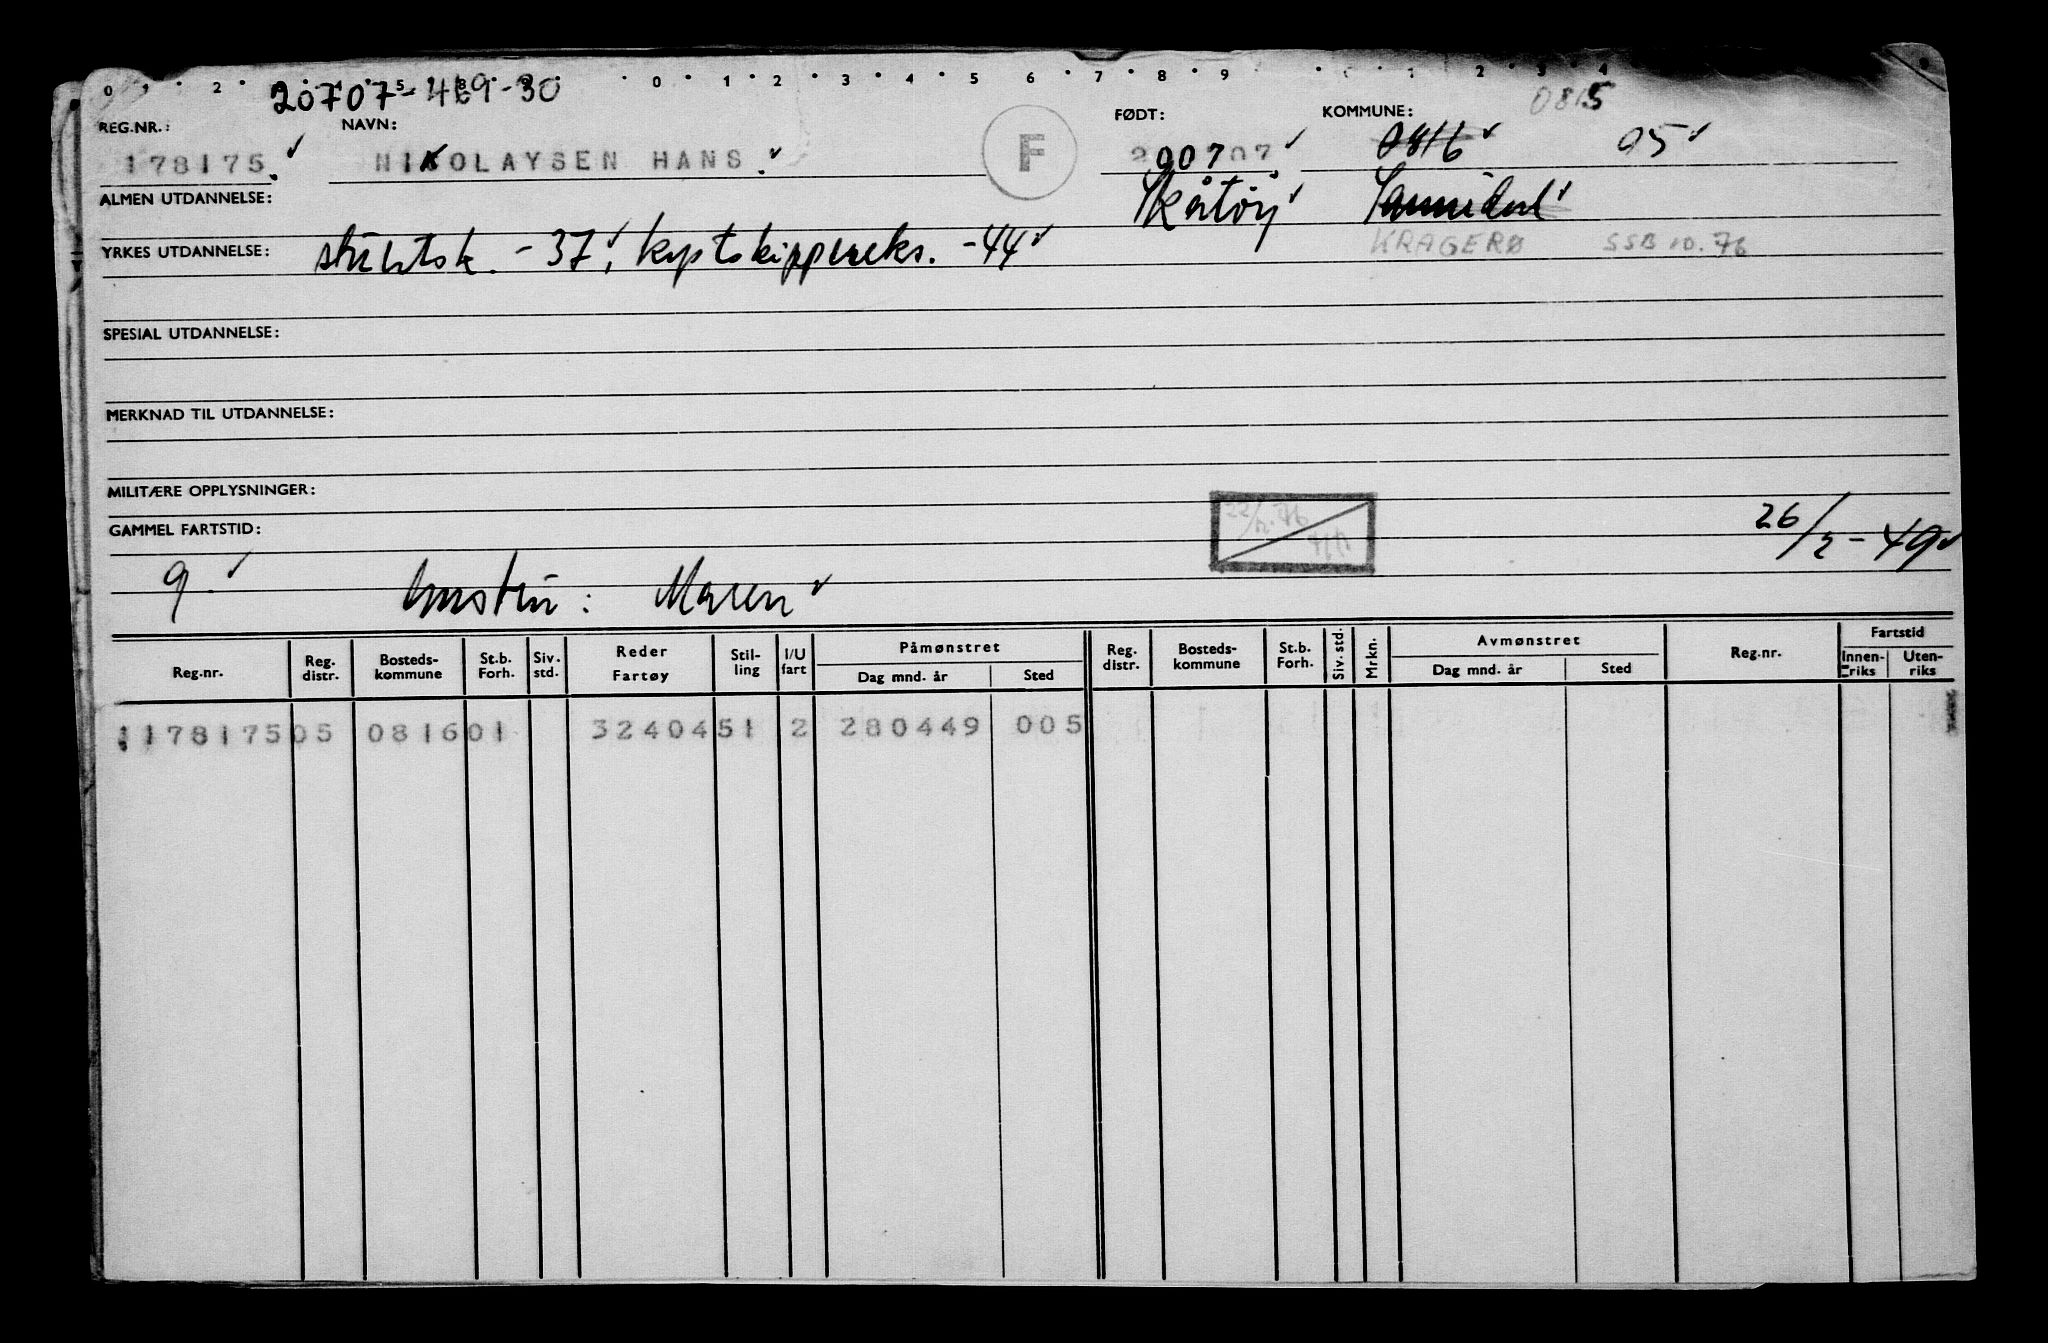 0 2 5 8 0 1 2 3 4 5 6 7 8 9 1 2 3 4
20707-469-30
0815
REG.NR.: NAVN: FØDT: KOMMUNE:
178175 NIKOLAYSEN HANS F 200707 0816 05
ALMEN UTDANNELSE: Skåtøy Sannidal
YRKES UTDANNELSE: -37, kystskippereks. -44 KRAGERØ SSB 10.76
SPESIAL UTDANNELSE:
MERKNAD TIL UTDANNELSE:
MILITÆRE OPPLYSNINGER:
GAMMEL FARTSTID: 26/2-49
9 hustru: Maren
Reg.nr. Reg. distr. Bosteds-kommune St.b. Forh. Siv. std. Reder Fartøy Stil-ling I/U fart Påmønstret Dag mnd. år Sted Reg. distr. Bosteds-kommune St.b. Forh. Siv. std. Mrkn. Avmønstret Dag mnd. år Sted Reg.nr. Fartstid Innen-riks Uten-riks
1178175 05 0816 01 32404 51 2 280449 005